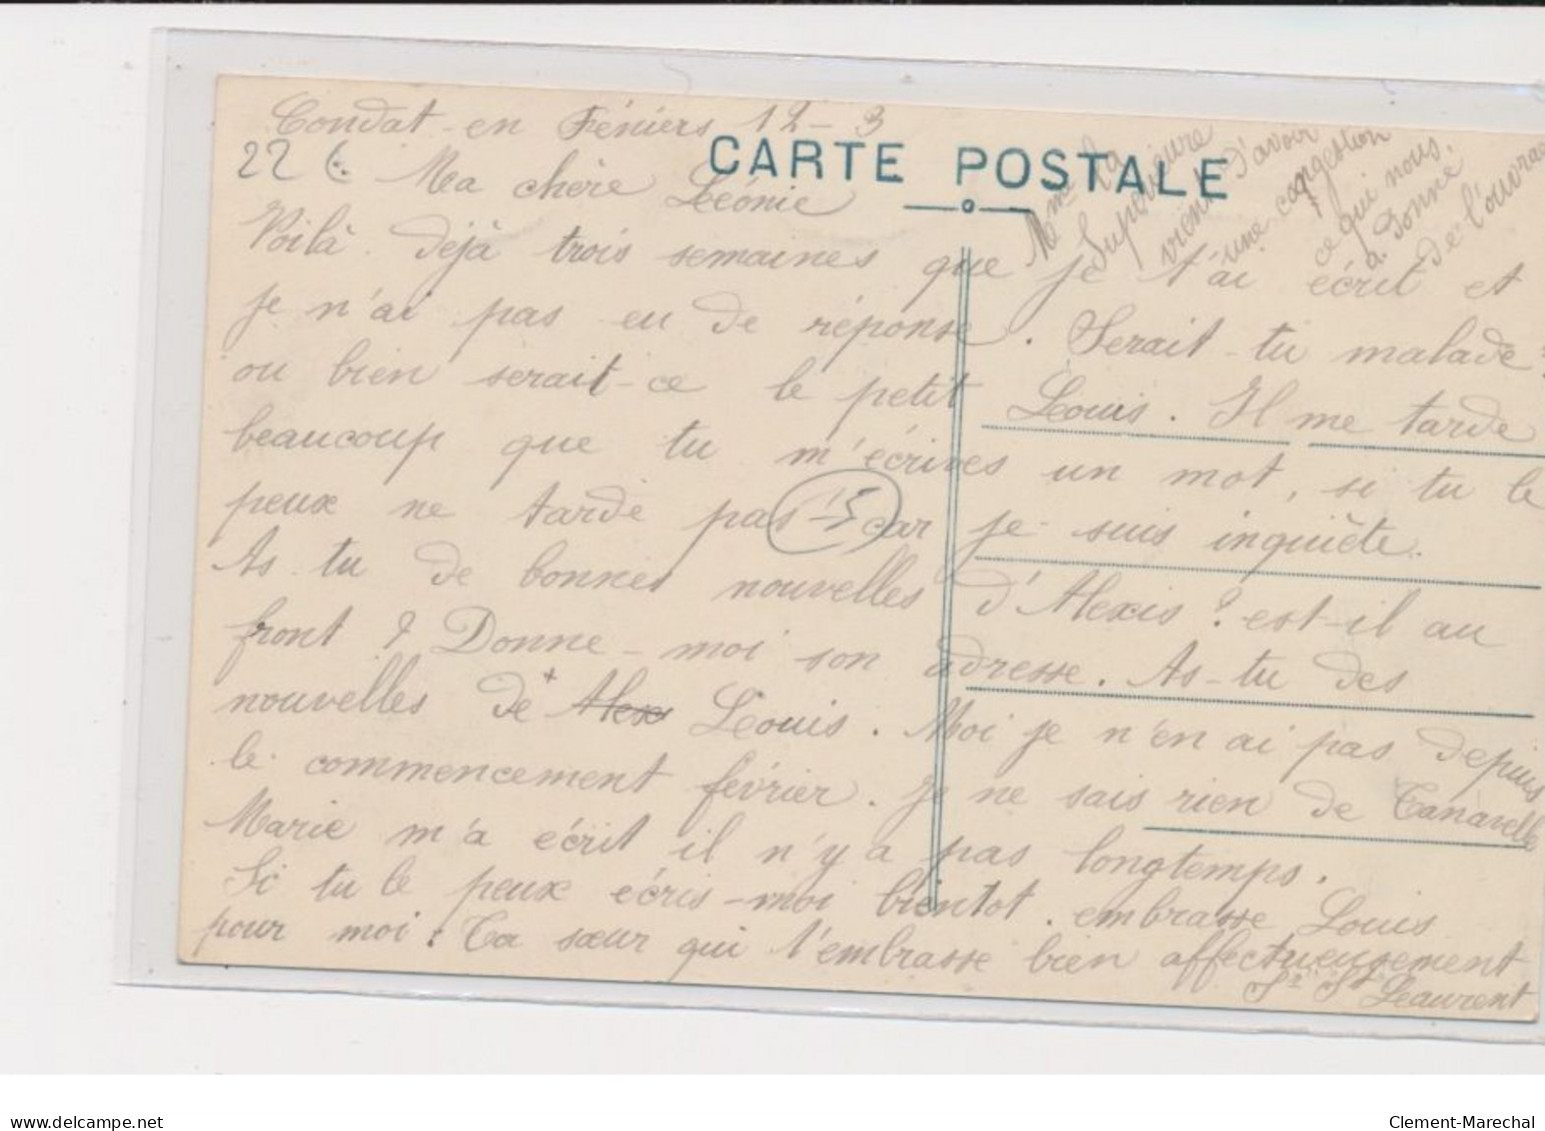 Condat-en Féniers 12-3
CARTE POSTALE
22 €
Ma chère Léonie
Voilà déjà trois semaines que je t'ai écrit et
je n'ai pas eu de réponse. Serait-tu malade?
ou bien serait-ce le petit Louis. Il me tarde
beaucoup que tu m'écrives un mot, si tu le
peux ne tarde pas car je suis inquiète.
15
As-tu de bonnes nouvelles d'Alexis? est-il au
front? Donne-moi son adresse. As-tu des
nouvelles de Alex Louis. Moi je n'en ai pas depuis
le commencement février. Je ne sais rien de Canavelle
Marie m'a écrit il n'y a pas longtemps.
Si tu le peux écris-moi bientot. embrasse Louis
pour moi. Ta sœur qui t'embrasse bien affectueusement
Sr St Leaurent
Mme la
Supérieure
vient d'avoir
une congestion
ce qui nous.
a donné
de l'ouvrage
delcampe.net
Clement-Marechal